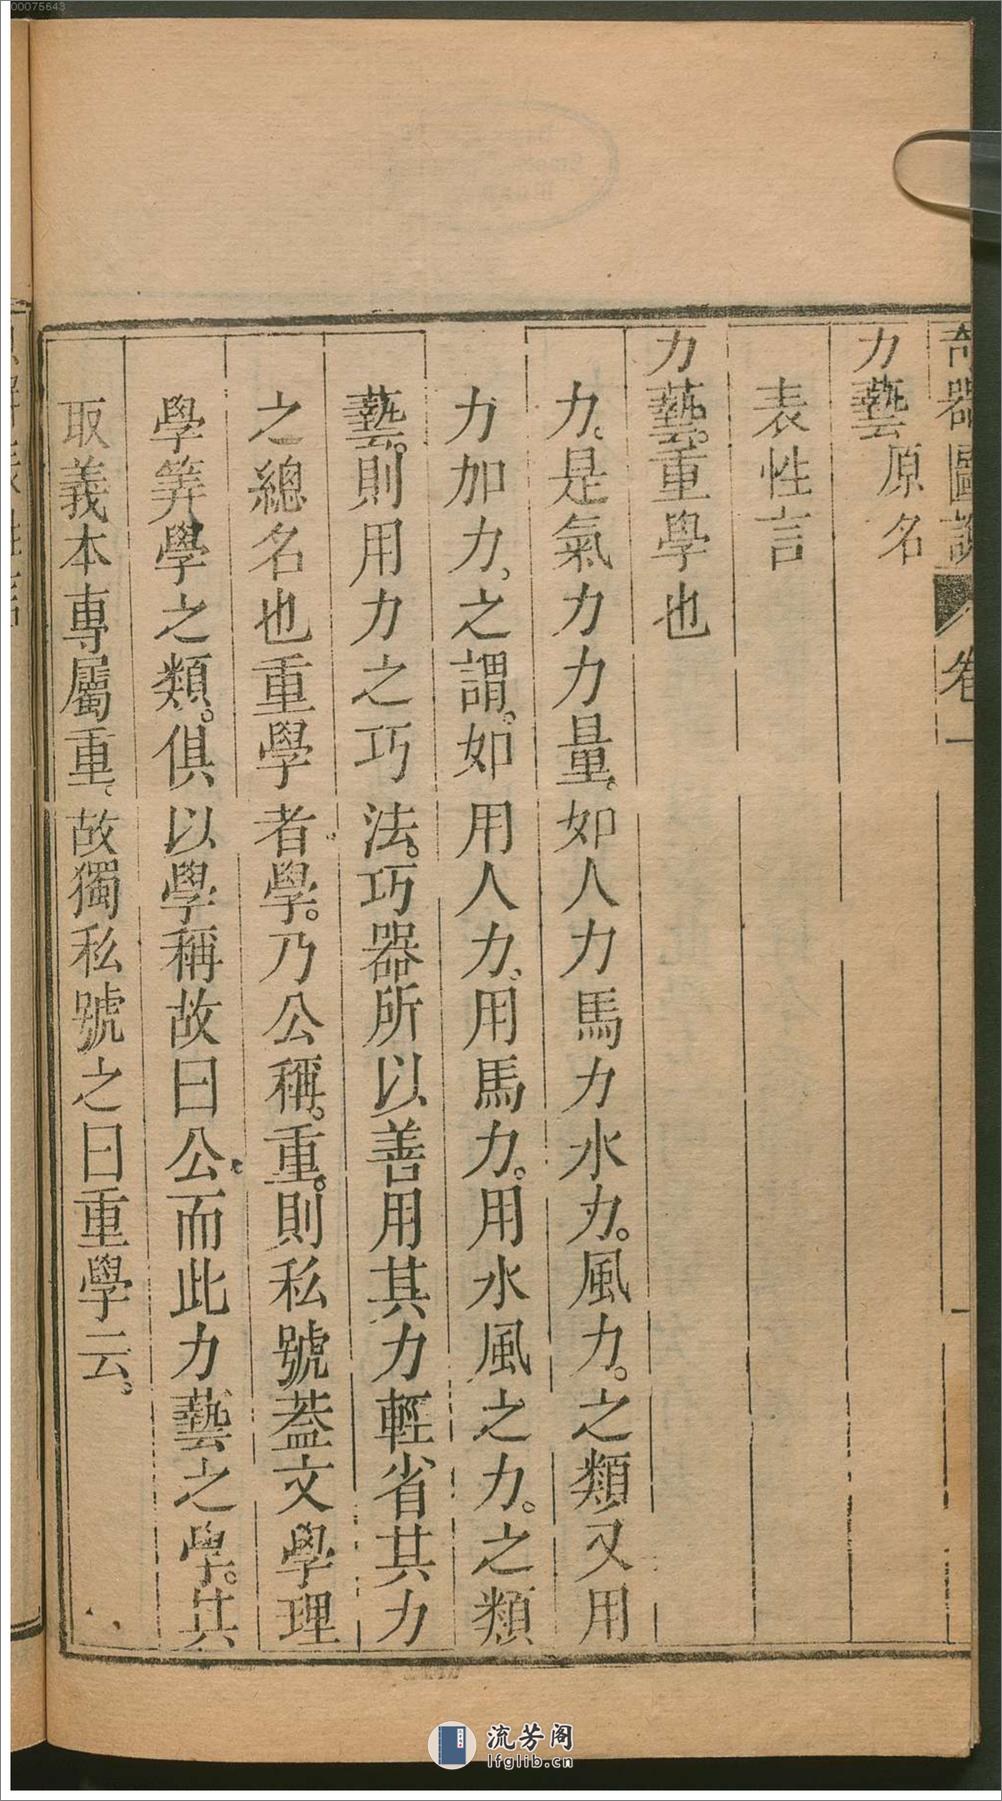 00075643
奇器圖說 卷一
力藝原名
表性言
力藝。重學也
力。是氣力力量。如人力馬力水力。風力。之類又用
力加力。之謂。如用人力、用馬力。用水風之力。之類
藝。則用力之巧法。巧器所以善用其力輕省其力
之總名也重學者學。乃公稱。重。則私號葢文學理
學筭學之類。俱以學稱故曰公而此力藝之學。其
取義本專屬重、故獨私號之曰重學云。
流芳阁
lfglib.cn